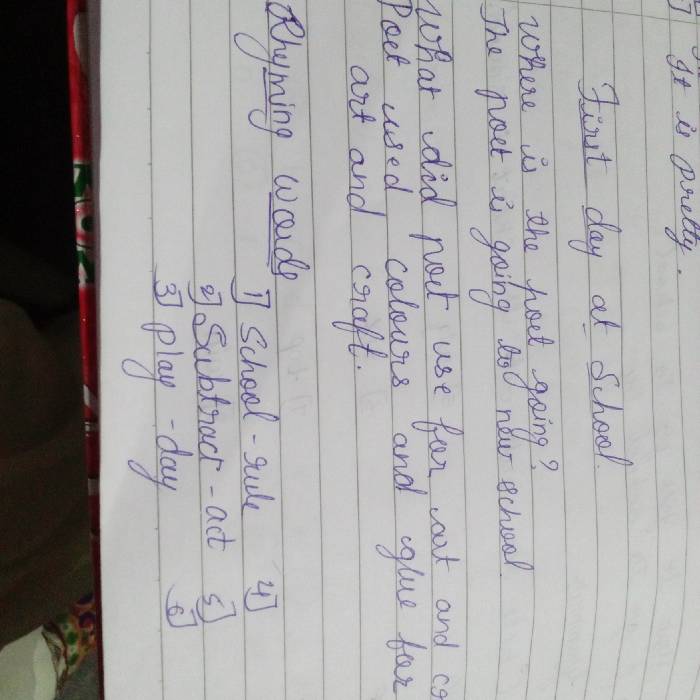 It is pretty.
First day at School.
Where is the poet going?
The poet is going to new school.
What did poet use for art and
Poet used colours and glue for
art and craft.
Rhyming words
1] School - rule 4]
2] Subtract - act 5]
3] Play - day 6]